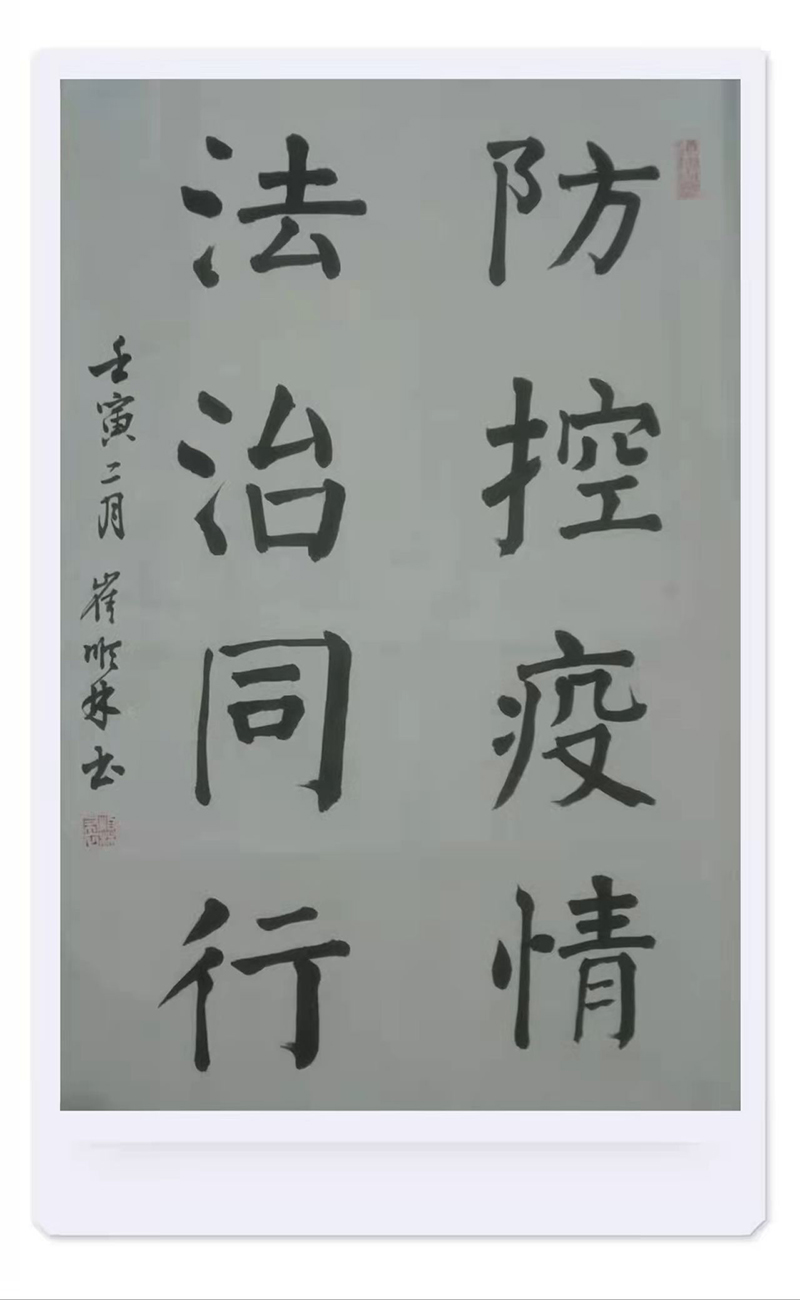 防控疫情
法治同行
壬寅二月 崔顺林书